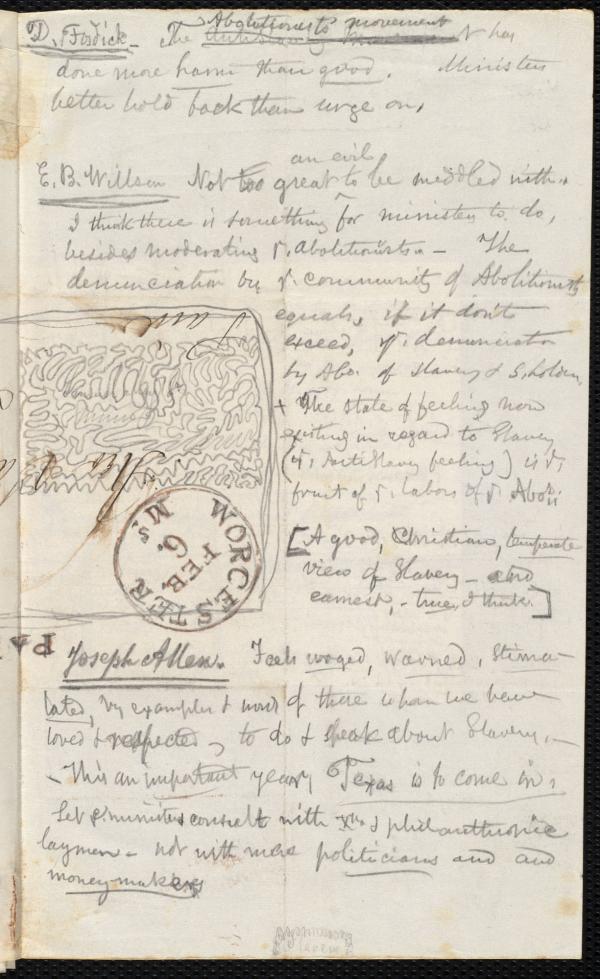 D. Fosdick. The Abolitionists movement has
done more harm than good. Ministers
better hold back than urge on.
an evil
E. B. Willson Not too great to be meddled with.
I think there is something for ministers to do,
besides moderating y. abolitionists. — The
denunciation by y. community of Abolitionists
equals, if it don't
exceed, y. denunciation
by Abo. of Slavery & S. holders
+ The state of feeling now
existing in regard to Slavery
(y. Antislavery feeling) is y.
fruit of y. labors of y. Aboli
[A good, Christian, temperate
view of Slavery — and
earnest, - true, I think.]
WORCESTER
FEB.
6
Ms
PA
Joseph Allen. Feels urged, warned, stimu-
lated, by examples & words of those whom we have
loved & respected, to do & speak about Slavery. —
- This an important year, Texas is to come in.
Let y. ministers consult with & philanthropic
laymen - not with mere politicians and and
money-makers